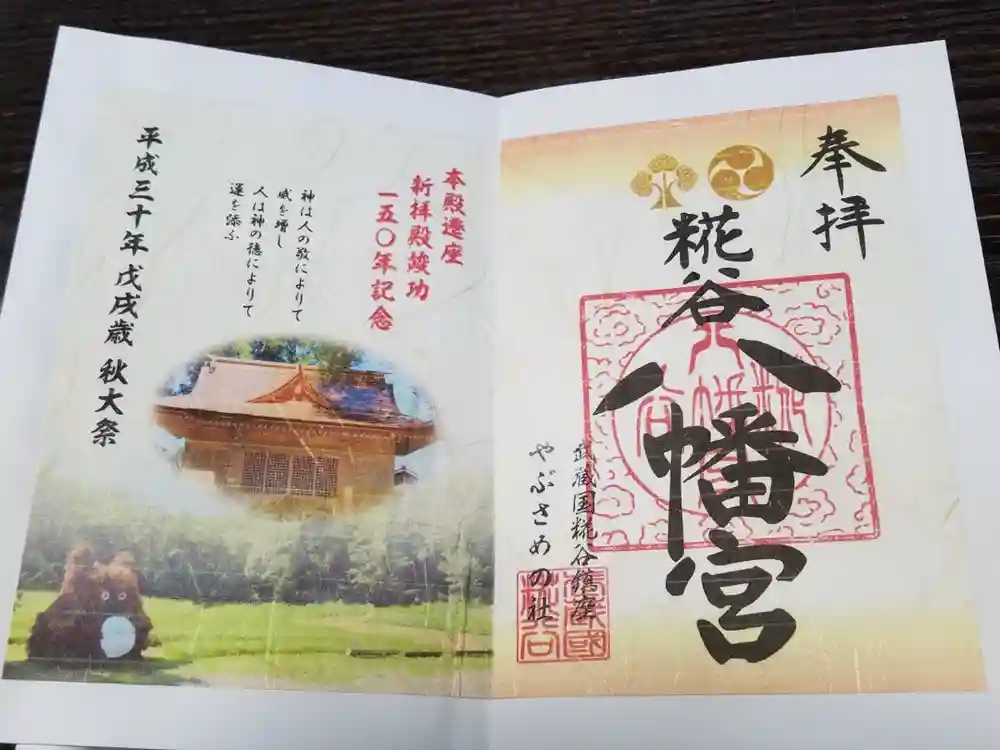 奉拝
糀谷
八幡宮
武蔵国糀谷鎮座
やぶさめの社
本殿遷座
新拝殿竣功
一五〇年記念
神は人の敬によりて
威を増し
人は神の徳によりて
運を添ふ
平成三十年戊戌歳 秋大祭